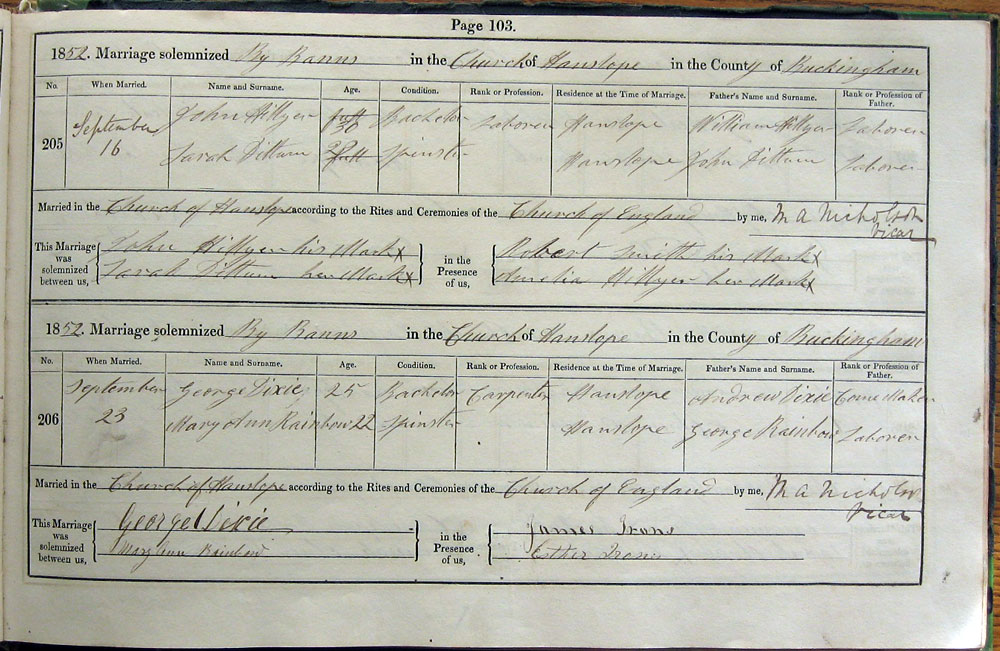 Page 103.
1852. Marriage solemnized By Banns in the Church of Hanslope in the County of Buckingham
No. When Married. Name and Surname. Age. Condition. Rank or Profession. Residence at the Time of Marriage. Father's Name and Surname. Rank or Profession of Father.
205 September 16 John Hillyer full 30 Bachelor Laborer Hanslope William Hillyer Laborer
Sarah full Spinster Hanslope John Laborer
Married in the Church of Hanslope according to the Rites and Ceremonies of the Church of England by me, M A Nicholson Vicar
This Marriage was solemnized between us, John Hillyer his Mark X in the Presence of us, Robert Smith his Mark X
Sarah her Mark X Aurelia Hillyer her Mark X
1852. Marriage solemnized By Banns in the Church of Hanslope in the County of Buckingham
No. When Married. Name and Surname. Age. Condition. Rank or Profession. Residence at the Time of Marriage. Father's Name and Surname. Rank or Profession of Father.
206 September 23 George Dixie 25 Bachelor Carpenter Hanslope Andrew Dixie Maker
Mary Ann Rainbow 22 Spinster Hanslope George Rainbow Laborer
Married in the Church of Hanslope according to the Rites and Ceremonies of the Church of England by me, M A Nicholson Vicar
This Marriage was solemnized between us, George Dixie in the Presence of us, James Irons
Mary Ann Rainbow Esther Irons